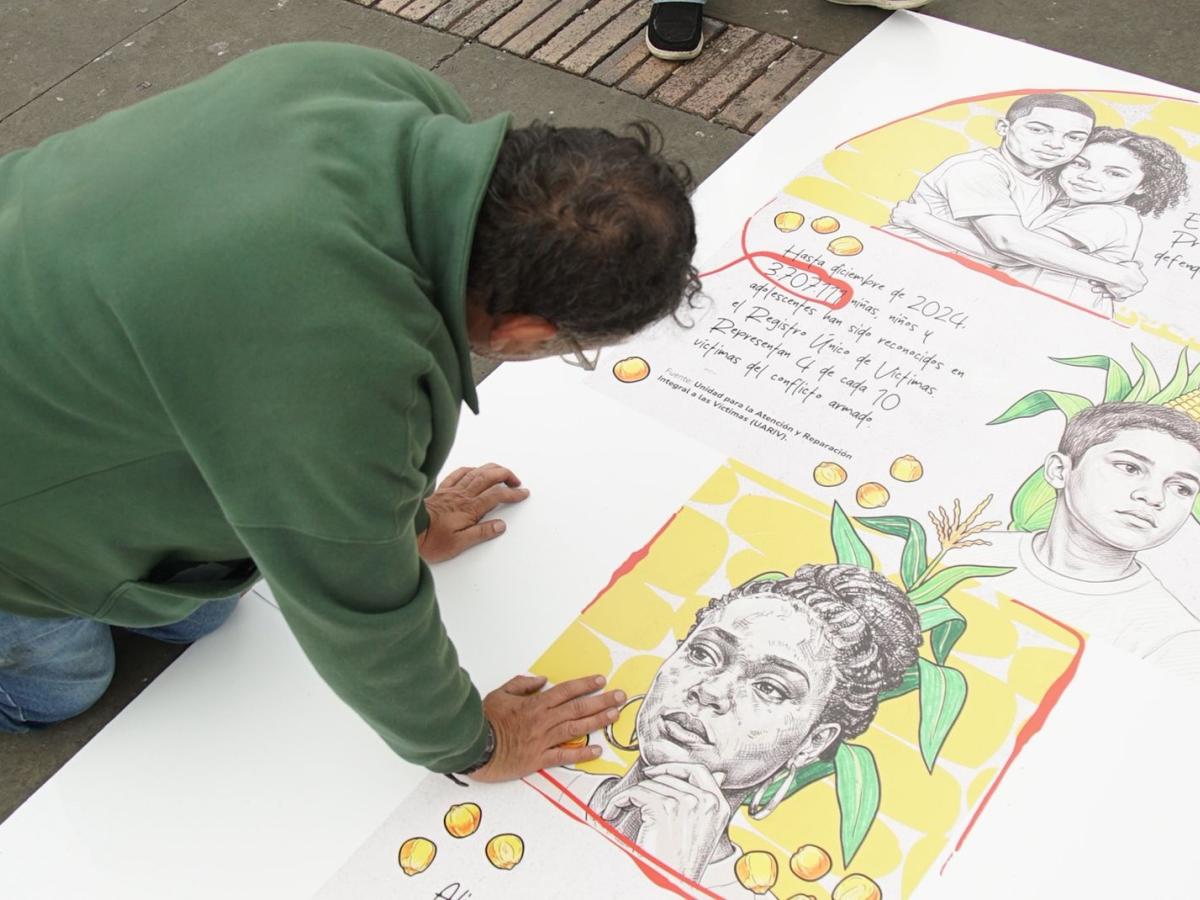 Hasta diciembre de 2024,
niñas, niños y
adolescentes han sido reconocidos en
el Registro Único de Víctimas.
Representan 4 de cada 10
víctimas del conflicto armado.
Fuente: Unidad para la Atención y Reparación
Integral a las Víctimas (UARIV).